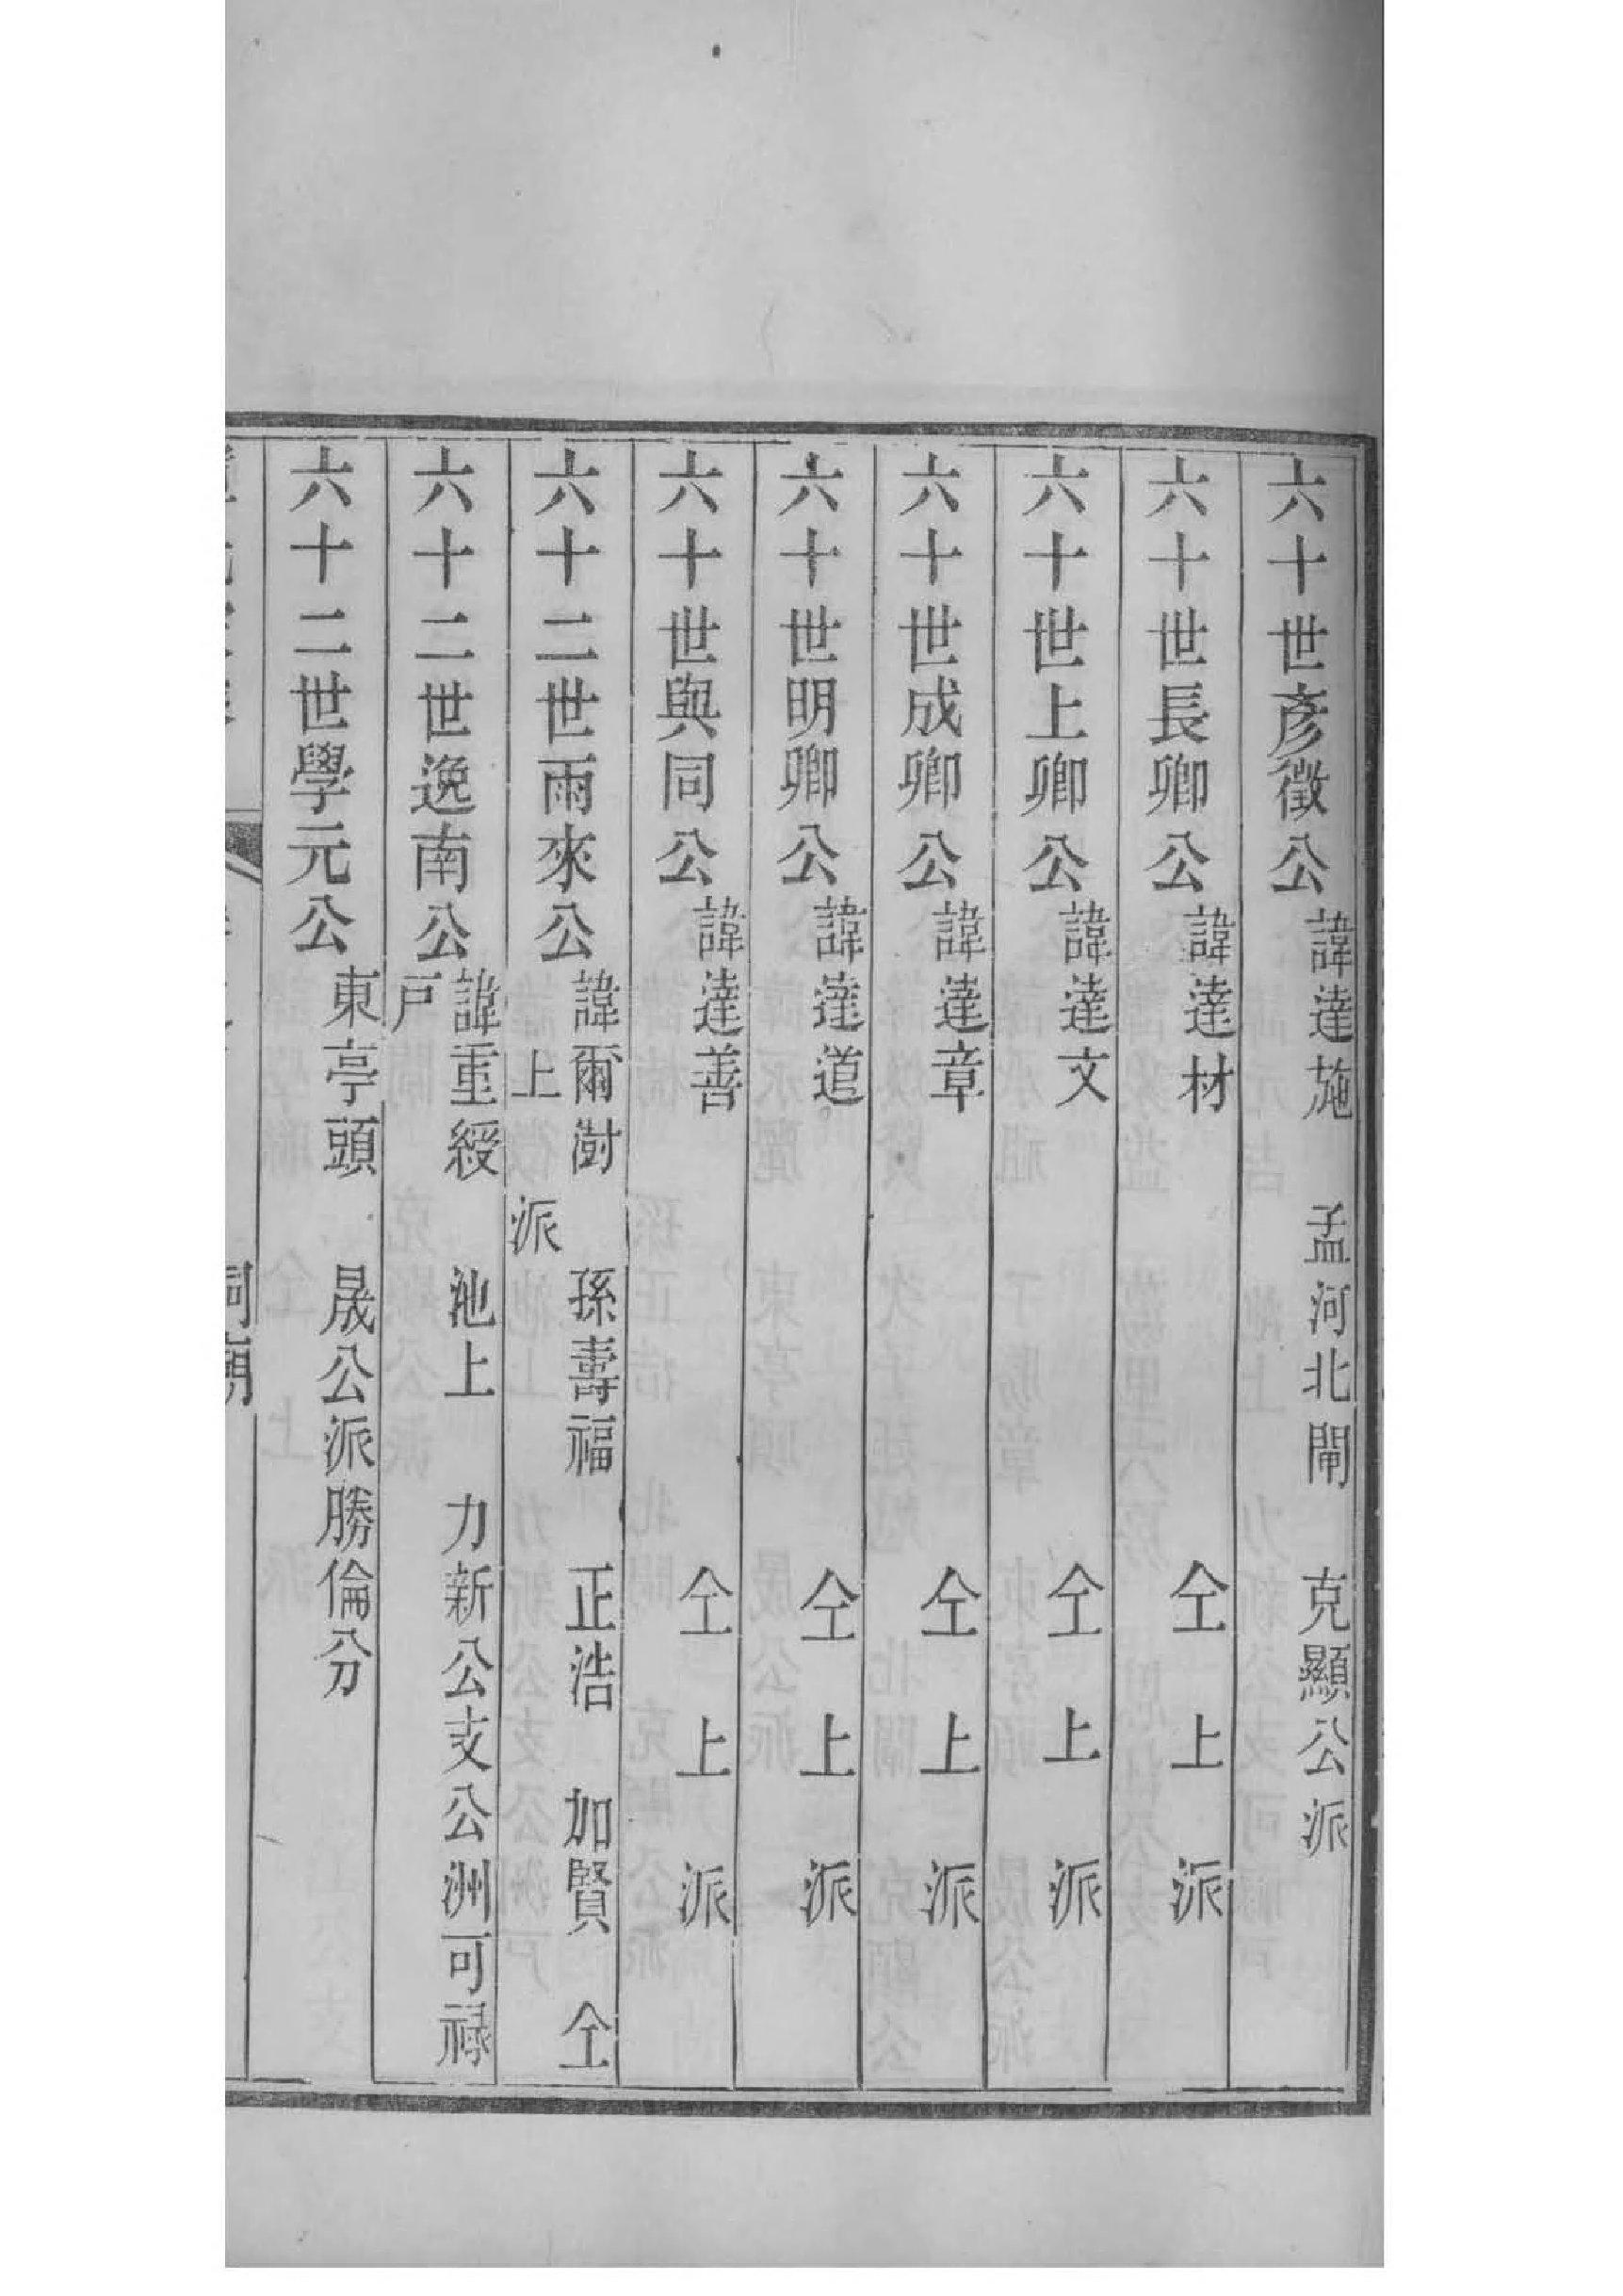 六十世彥徵公 諱達施 孟河北閘 克顯公派
六十世長卿公 諱達材 仝上派
六十世上卿公 諱達文 仝上派
六十世成卿公 諱達章 仝上派
六十世明卿公 諱達道 仝上派
六十世與同公 諱達善 仝上派
六十二世雨來公 諱爾澍 孫壽福 正浩 加賢 仝
上派
六十二世逸南公 諱重綬 池上 力新公支公洲可祿
戶
六十二世學元公 東亭頭 晟公派勝倫分
祠廟